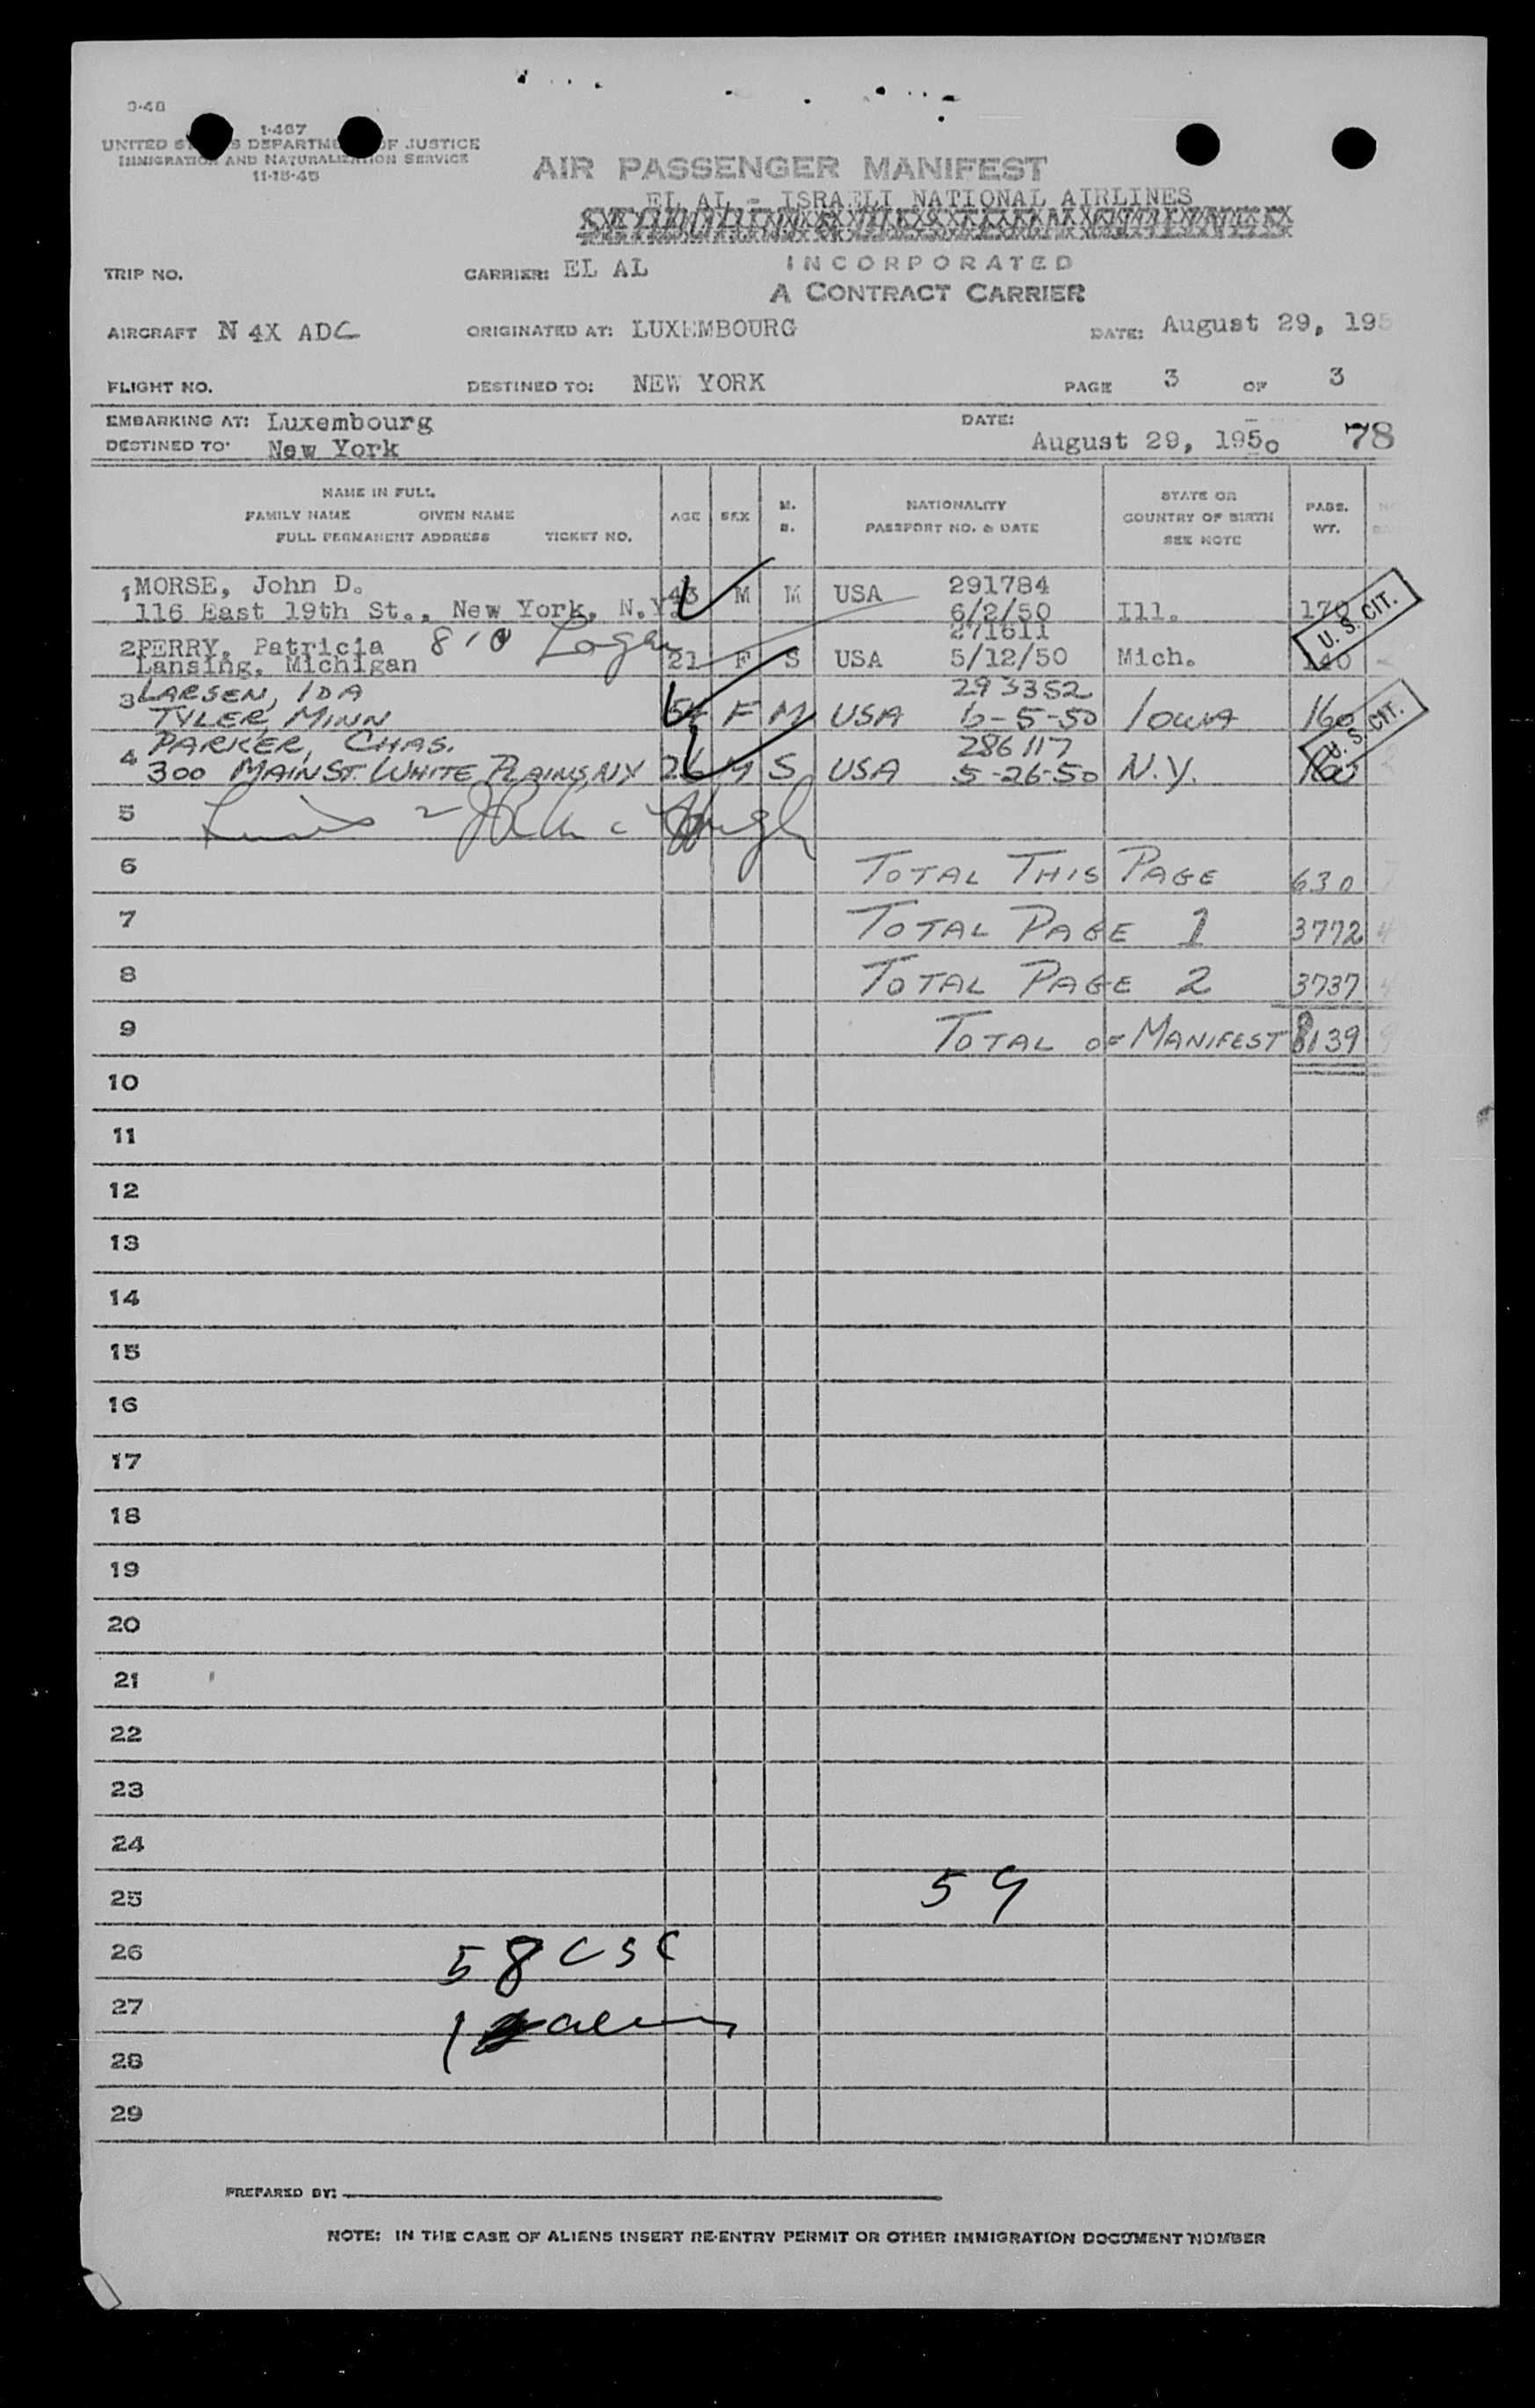 3-48
1-467
UNITED S S DEPARTM OF JUSTICE
IMMIGRATION AND NATURALIZATION SERVICE
11-15-45
AIR PASSENGER MANIFEST
EL AL - ISRAELI NATIONAL AIRLINES
INCORPORATED
A CONTRACT CARRIER
TRIP NO. CARRIER: EL AL
AIRCRAFT N 4X ADC ORIGINATED AT: LUXEMBOURG DATE: August 29, 195
FLIGHT NO. DESTINED TO: NEW YORK PAGE 3 OF 3
EMBARKING AT: Luxembourg DATE:
DESTINED TO: New York August 29, 1950 78
NAME IN FULL
FAMILY NAME GIVEN NAME
FULL PERMANENT ADDRESS TICKET NO.
AGE SEX M. S.
NATIONALITY
PASSPORT NO. & DATE
STATE OR
COUNTRY OF BIRTH
SEE NOTE
PASS.
WT.
1 MORSE, John D. 43 M M USA 291784
116 East 19th St., New York, N.Y. 6/2/50 Ill. 170
U. S. CIT.
2 PERRY, Patricia 810 Logan 271611
Lansing, Michigan 21 F S USA 5/12/50 Mich. 140
3 LARSEN, IDA 293352
TYLER, MINN 54 F M USA 6-5-50 IOWA 160
U. S. CIT.
4 PARKER, CHAS. 286117
300 MAIN ST. WHITE PLAINS, NY 26 M S USA 5-26-50 N.Y. 160
5
6 TOTAL THIS PAGE 630
7 TOTAL PAGE 1 3772
8 TOTAL PAGE 2 3737
9 TOTAL OF MANIFEST 8139
10
11
12
13
14
15
16
17
18
19
20
21
22
23
24
25 59
26 58 CSC
27 1 alien
28
29
PREPARED BY:
NOTE: IN THE CASE OF ALIENS INSERT RE-ENTRY PERMIT OR OTHER IMMIGRATION DOCUMENT NUMBER